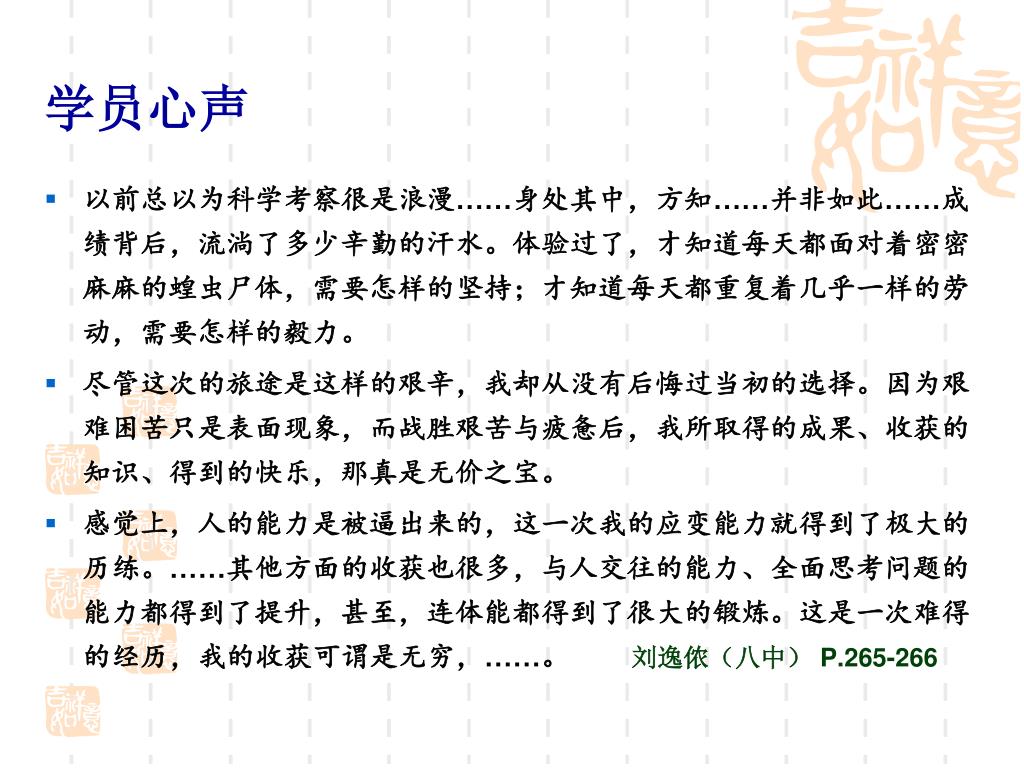 吉祥如意
学员心声
以前总以为科学考察很是浪漫……身处其中，方知……并非如此……成
绩背后，流淌了多少辛勤的汗水。体验过了，才知道每天都面对着密密
麻麻的蝗虫尸体，需要怎样的坚持；才知道每天都重复着几乎一样的劳
动，需要怎样的毅力。
尽管这次的旅途是这样的艰辛，我却从没有后悔过当初的选择。因为艰
难困苦只是表面现象，而战胜艰苦与疲惫后，我所取得的成果、收获的
知识、得到的快乐，那真是无价之宝。
感觉上，人的能力是被逼出来的，这一次我的应变能力就得到了极大的
历练。……其他方面的收获也很多，与人交往的能力、全面思考问题的
能力都得到了提升，甚至，连体能都得到了很大的锻炼。这是一次难得
的经历，我的收获可谓是无穷，……。 刘逸侬（八中） P.265-266
吉祥如意
吉祥如意
吉祥如意
吉祥如意
吉祥如意
吉祥如意